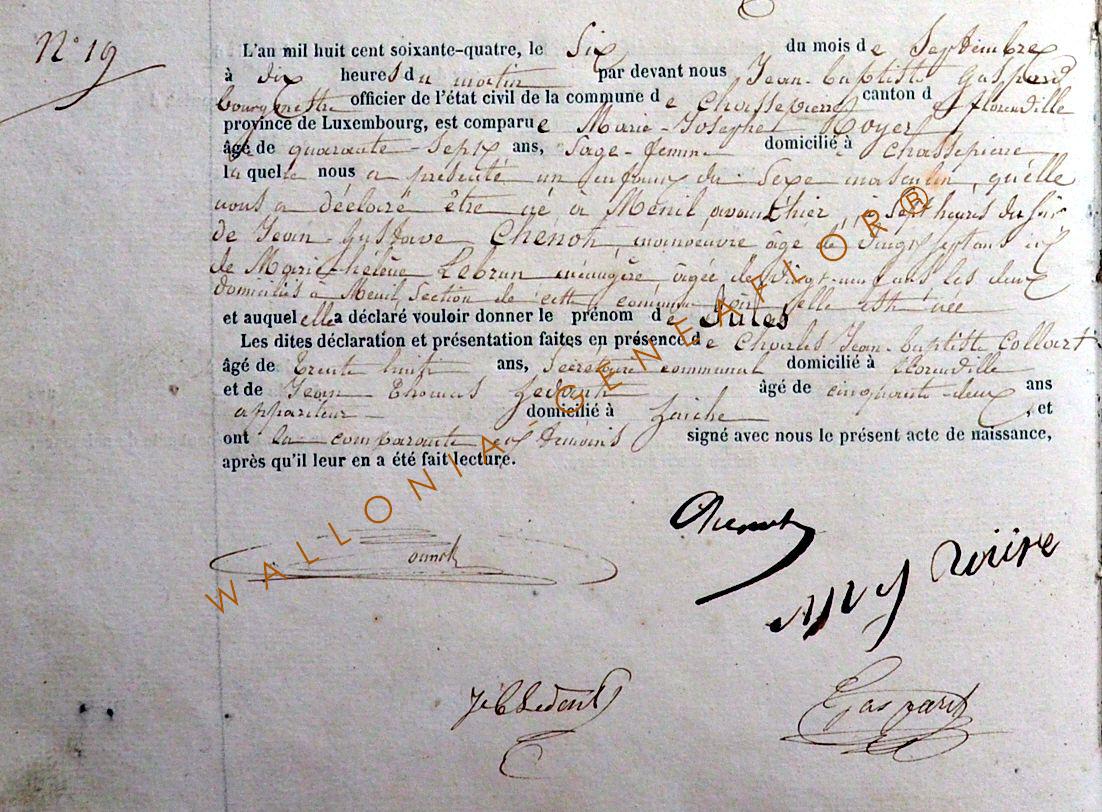 N° 19
L'an mil huit cent soixante-quatre, le Six du mois de Septembre
à dix heures du matin par devant nous Jean-baptiste Gaspard
bourgmestre officier de l'état civil de la commune de Chassepierre canton de florenville
province de Luxembourg, est comparue Marie-Josephe Royer,
âgée de quarante-Sept ans, Sage-femme domicilié à Chassepierre
la quelle nous a présenté un enfant du Sexe masculin, qu'elle
nous a déclaré être né à Menil avant hier, à Sept heures du Soir
de Jean-Gustave Chenot, manoeuvre âgé de vingt sept ans et
de Marie-hélène Lebrun ménagère âgée de vingt-neuf ans les deux
domiciliés à Menil, Section de cette commune où elle est née
et auquel elle a déclaré vouloir donner le prénom de Jules
Les dites déclaration et présentation faites en présence de Charles Jean-baptiste Collart
âgé de Trente huit ans, Secrétaire communal domicilié à florenville
et de Jean Thomas Ledent âgé de cinquante-deux ans
appariteur domicilié à Laiche , et
ont la comparante et témoins signé avec nous le présent acte de naissance,
après qu'il leur en a été fait lecture.
Chenot
Ledent
Gaspard
WALLONIA-GENEAFLOR®